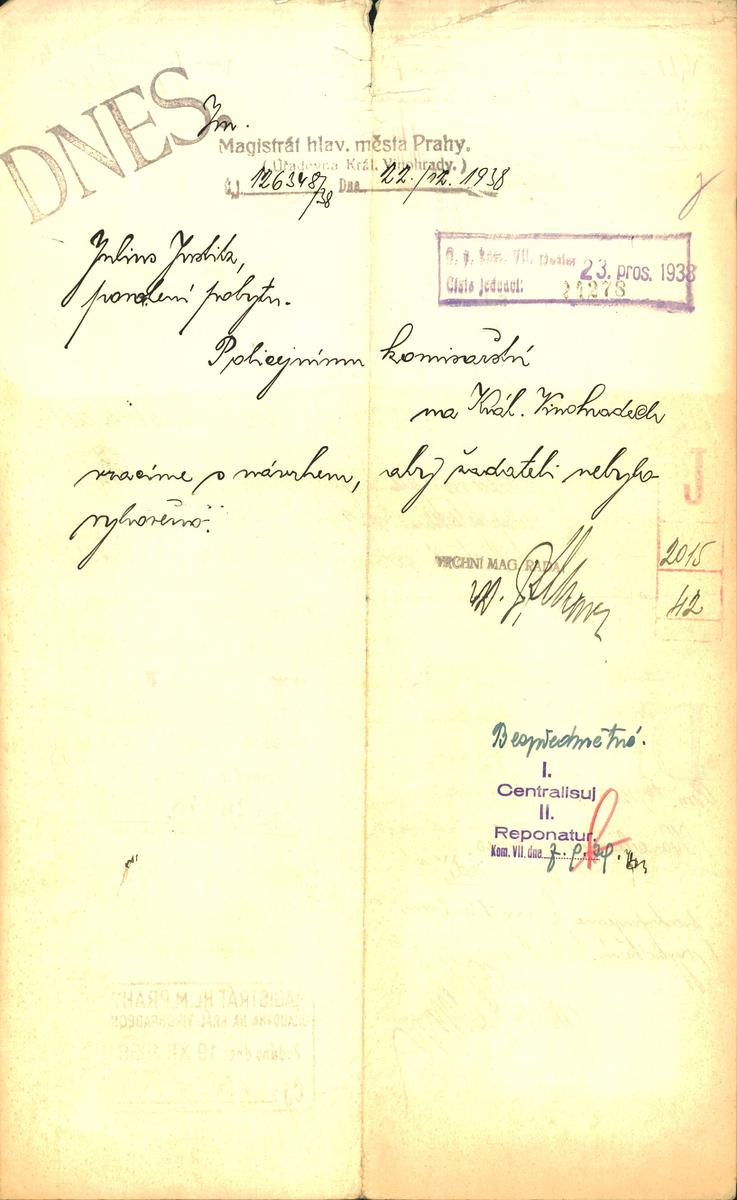 DNES.
Im.
Magistrát hlav. města Prahy.
(Úřadovna Král. Vinohrady.)
Č.j. 126348/38 Dne 22./12. 1938
Julius Justitz,
povolení pobytu.
23. pros. 1938
Číslo jednací: 21278
Policejnímu komisařství
na Král. Vinohradech
vracíme s návrhem, aby žadateli nebylo
vyhověno.
J
2015
42
VRCHNÍ MAG. RADA:
Bezpředmětné.
I.
Centralisuj
II.
Reponatur.
Kom. VII. dne
MAGISTRÁT HL. M. PRAHY
ÚŘADOVNA NA KRÁL. VINOHRADECH
Podáno dne: 19 XII 1938